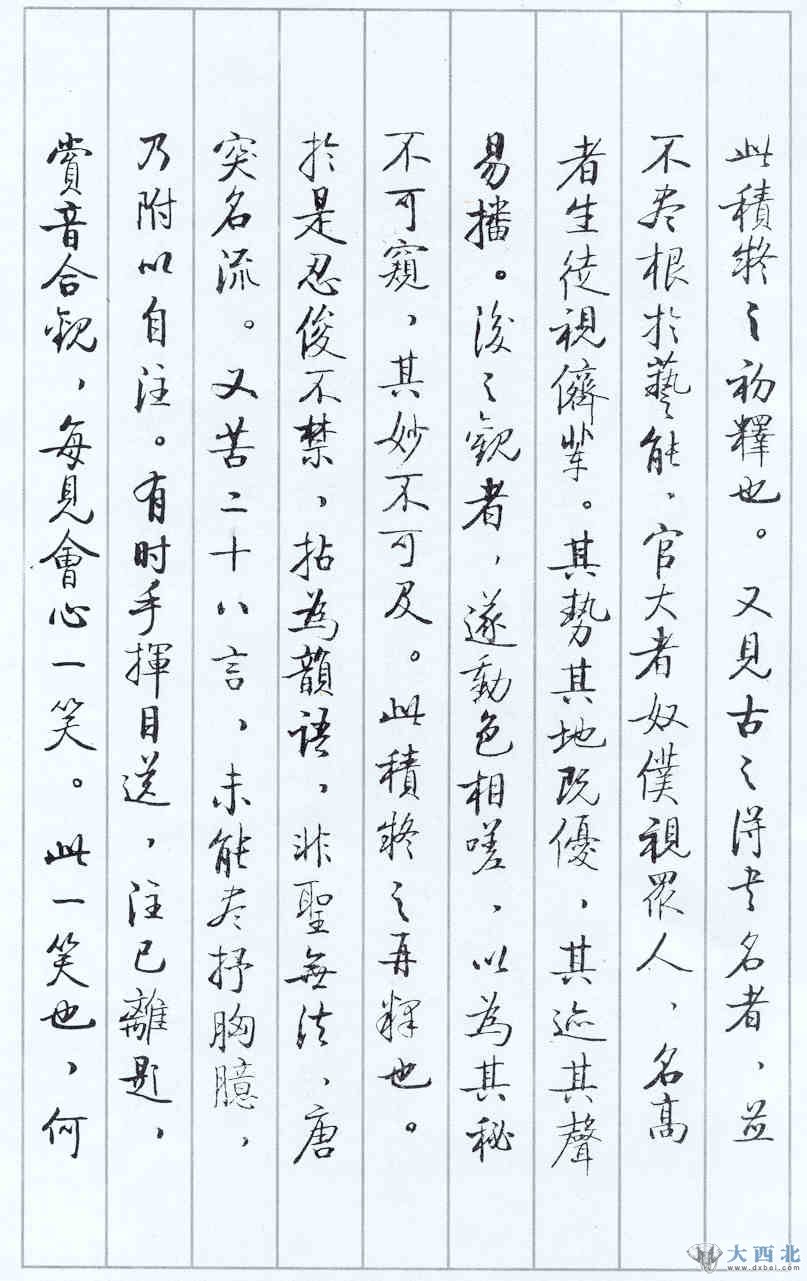 此積疑之初釋也。又見古之得書名者，並
不盡根於藝能，官大者奴僕視眾人，名高
者生徒視儕輩。其勢其地既優，其迹其聲
易播。後之觀者，遂動色相嗟，以為其秘
不可窺，其妙不可及。此積疑之再釋也。
於是忍俊不禁，拈為韻語，非聖無法，唐
突名流。又苦二十八言，未能盡抒胸臆，
乃附以自注。有时手揮目送，注已離題，
賞音合觀，每見會心一笑。此一笑也，何
大西北
www.dxbei.com